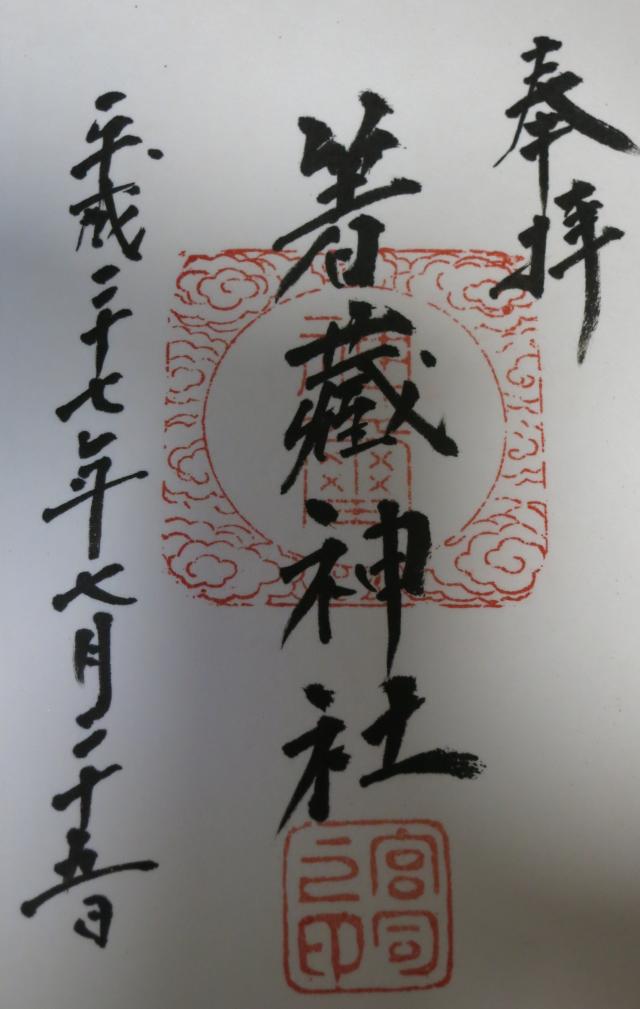 奉拝
箸藏神社
平成二十七年七月二十五日
宮司之印